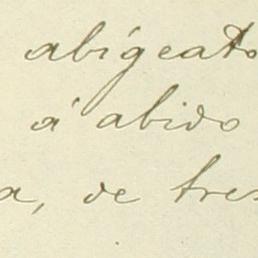 abigeato
á abido
a, de tres